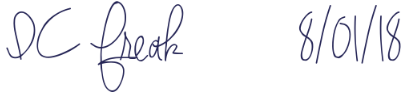 DC freak 8/01/18